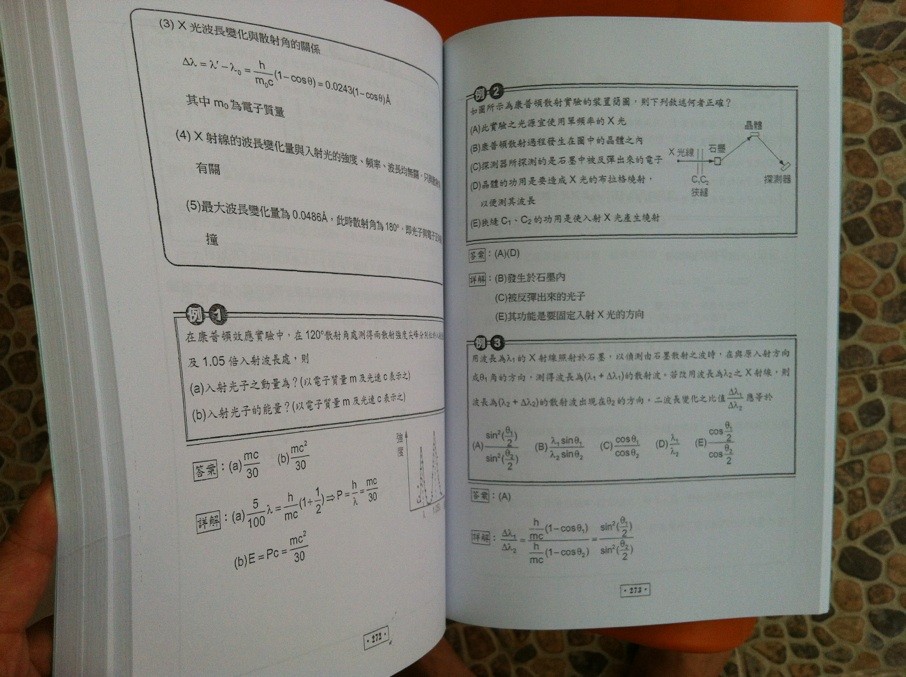 (3) X 光波長變化與散射角的關係
Δλ = λ′ − λ₀ = h/m₀c (1−cosθ) = 0.0243(1−cosθ)Å
其中 m₀ 為電子質量
(4) X 射線的波長變化量與入射光的強度、頻率、波長均無關，只與
有關
(5)最大波長變化量為 0.0486Å，此時散射角為 180°，即光子與電子
撞
例 1
在康普頓效應實驗中，在 120°散射角處測得兩散射強度尖峰分別
及 1.05 倍入射波長處，則
(a)入射光子之動量為？(以電子質量 m 及光速 c 表示之)
(b)入射光子的能量？(以電子質量 m 及光速 c 表示之)
答案：(a) mc/30 (b) mc²/30
強度
詳解：(a) 5/100 λ = h/mc (1+1/2) ⇒ P = h/λ = mc/30
(b) E = Pc = mc²/30
·272·
例 2
如圖所示為康普頓散射實驗的裝置簡圖，則下列敘述何者正確？
(A)此實驗之光源宜使用單頻率的 X 光
(B)康普頓散射過程發生在圖中的晶體之內
(C)探測器所探測的是石墨中被反彈出來的電子
(D)晶體的功用是要造成 X 光的布拉格繞射，
以便測其波長
(E)狹縫 C₁、C₂ 的功用是使入射 X 光產生繞射
晶體
X 光線 石墨
C₁C₂
狹縫
探測器
答案：(A)(D)
詳解：(B)發生於石墨內
(C)被反彈出來的光子
(E)其功能是要固定入射 X 光的方向
例 3
用波長為λ₁的 X 射線照射於石墨，以偵測由石墨散射之波時，在與原入射方向
成θ₁角的方向，測得波長為(λ₁ + Δλ₁)的散射波。若改用波長為λ₂之 X 射線，則
波長為(λ₂ + Δλ₂)的散射波出現在θ₂的方向，二波長變化之比值 Δλ₁/Δλ₂ 應等於
(A) sin²(θ₁/2)/sin²(θ₂/2) (B) λ₁sinθ₁/λ₂sinθ₂ (C) cosθ₁/cosθ₂ (D) λ₁/λ₂ (E) cos θ₁/2 / cos θ₂/2
答案：(A)
詳解：Δλ₁/Δλ₂ = h/mc (1−cosθ₁) / h/mc (1−cosθ₂) = sin²(θ₁/2)/sin²(θ₂/2)
·273·